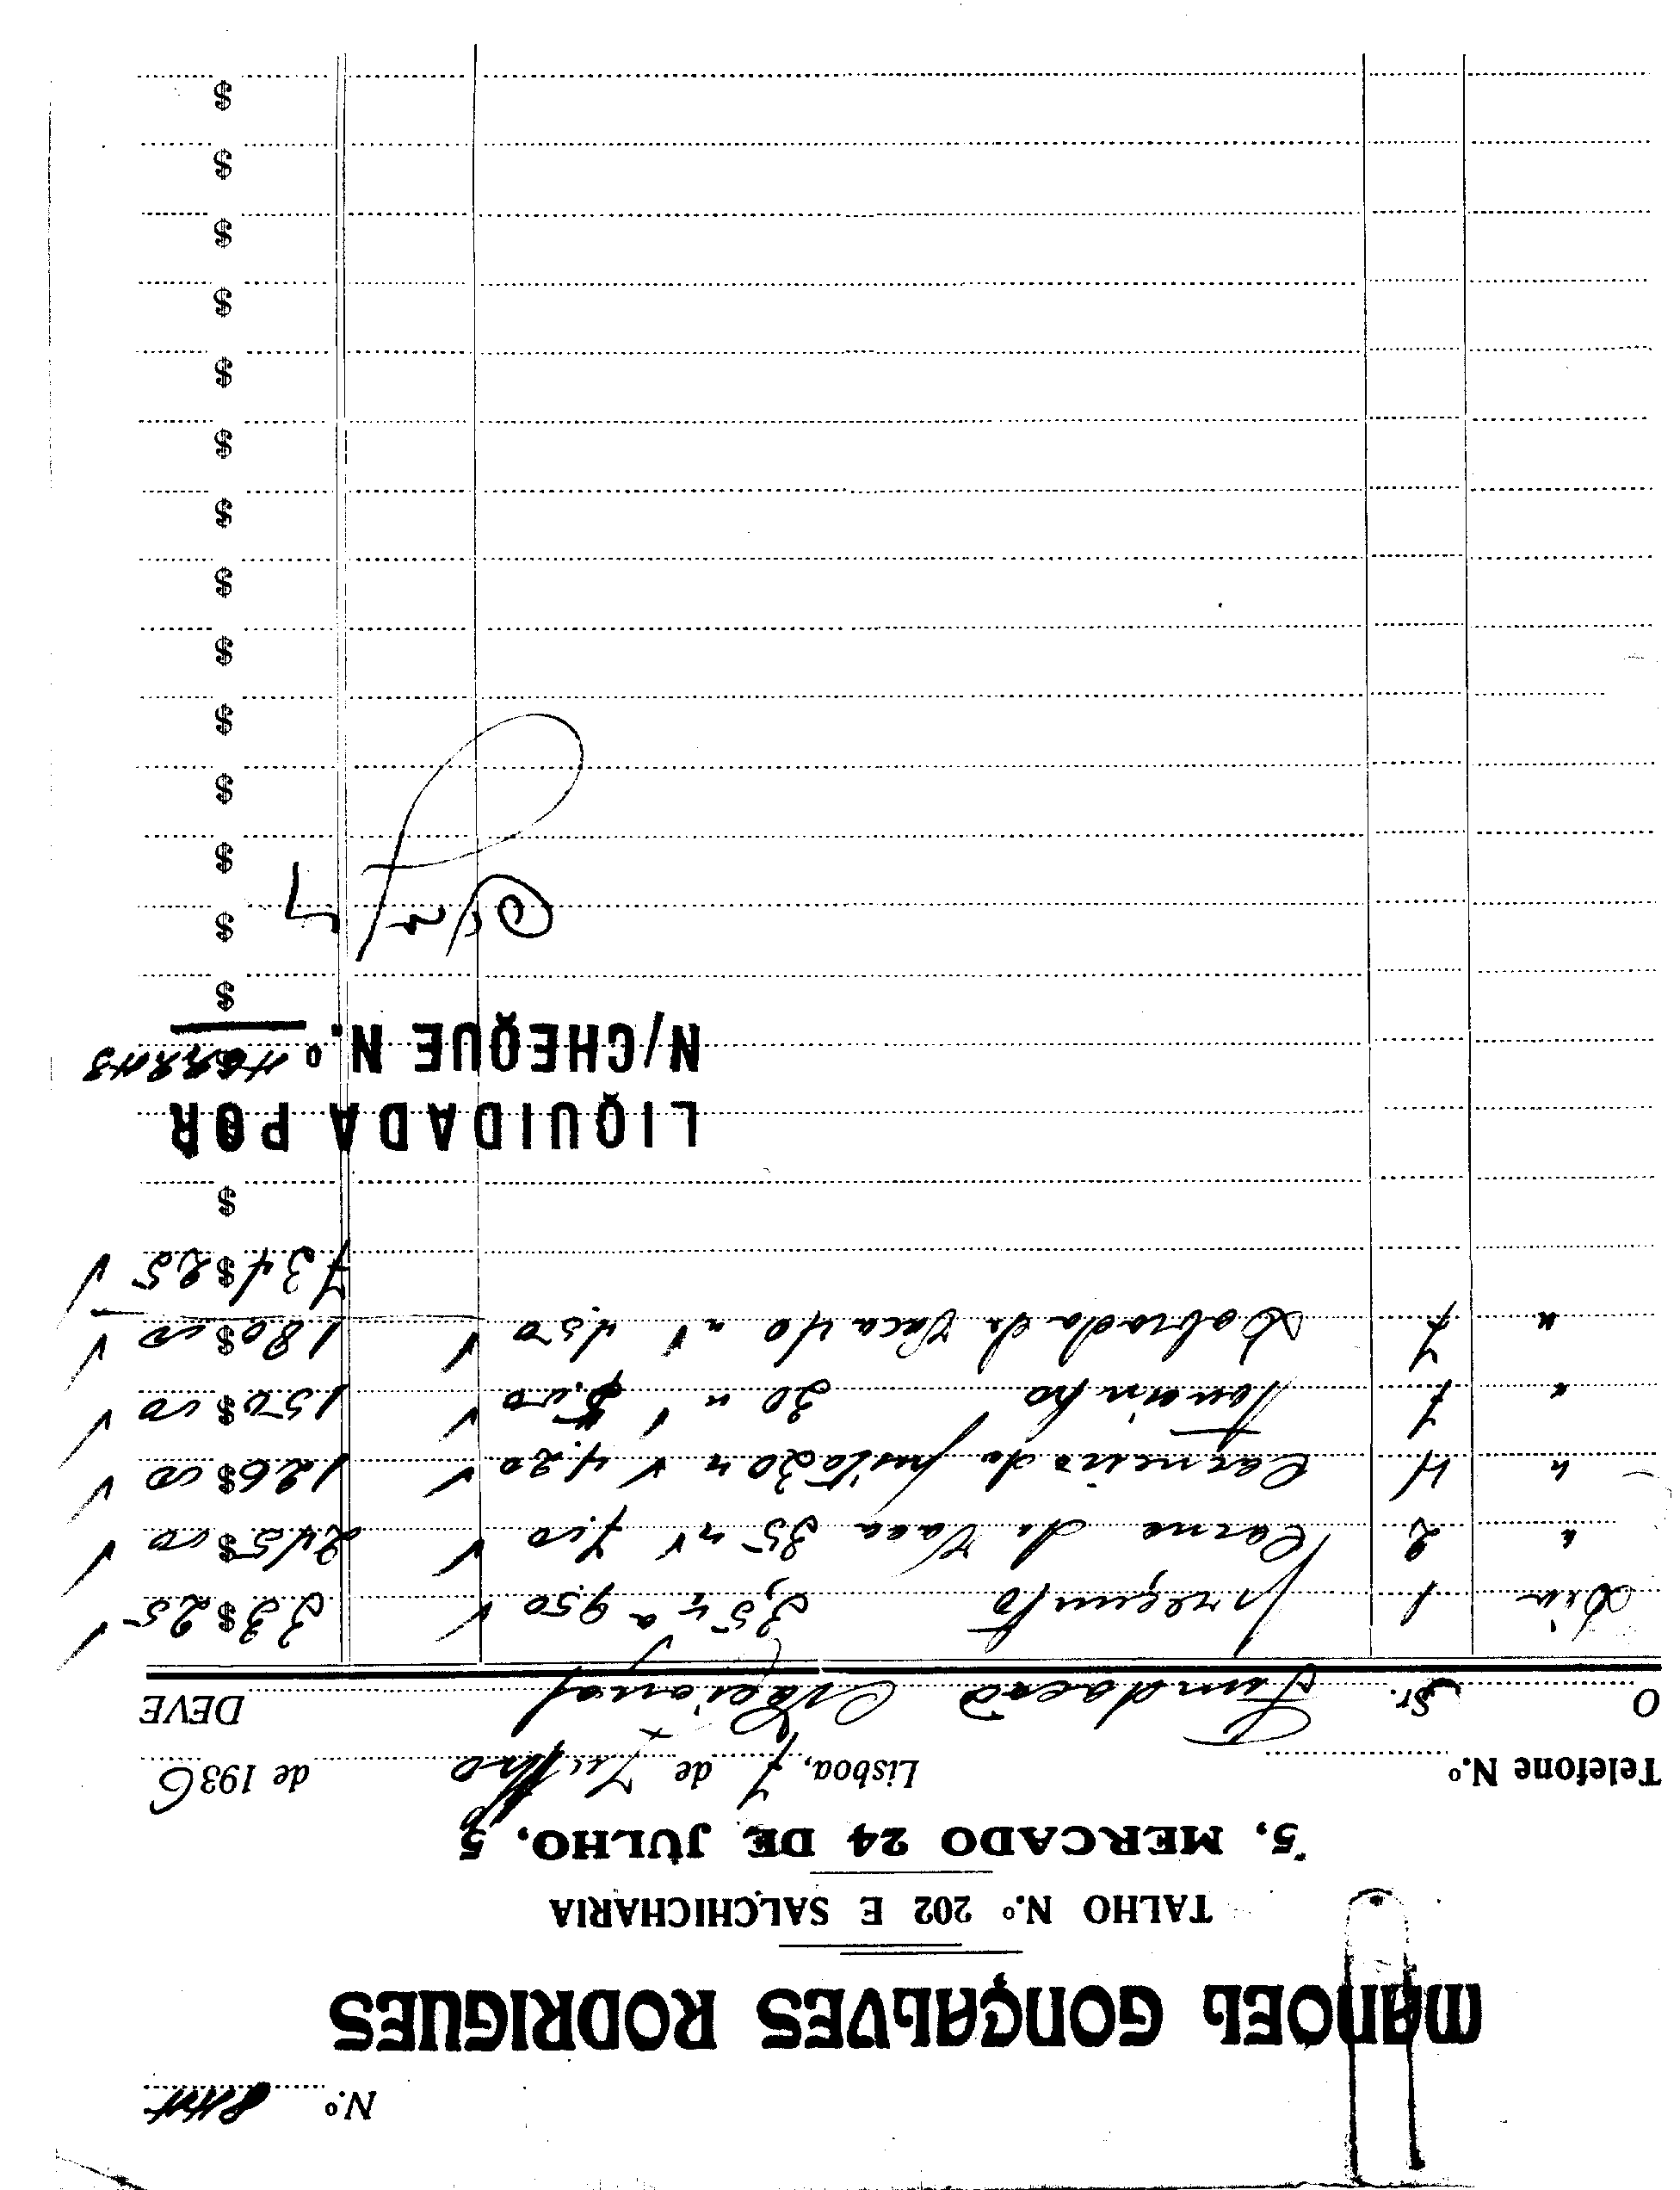 N.º
MANOEL GONÇALVES RODRIGUES
TALHO N.º 202 E SALCHICHARIA
5, MERCADO 24 DE JULHO, 5
Telefone N.º Lisboa, 7 de Julho de 1936
O Sr. Fundacão Nacional DEVE
Dia 1 preçunto 3,5 k a 9.50 33$25
" 2 Carne de Vaca 35 " 7.00 245$00
" 4 Carneiro de 30 " 4.20 126$00
" 7 Toucinho 30 " 5.00 150$00
" 7 Dobrada de Vaca 40 " 4.50 180$00
734$25
$
LIQUIDADA POR
N/CHEQUE N.º
$
$
$
$
$
$
$
$
$
$
$
$
$
$